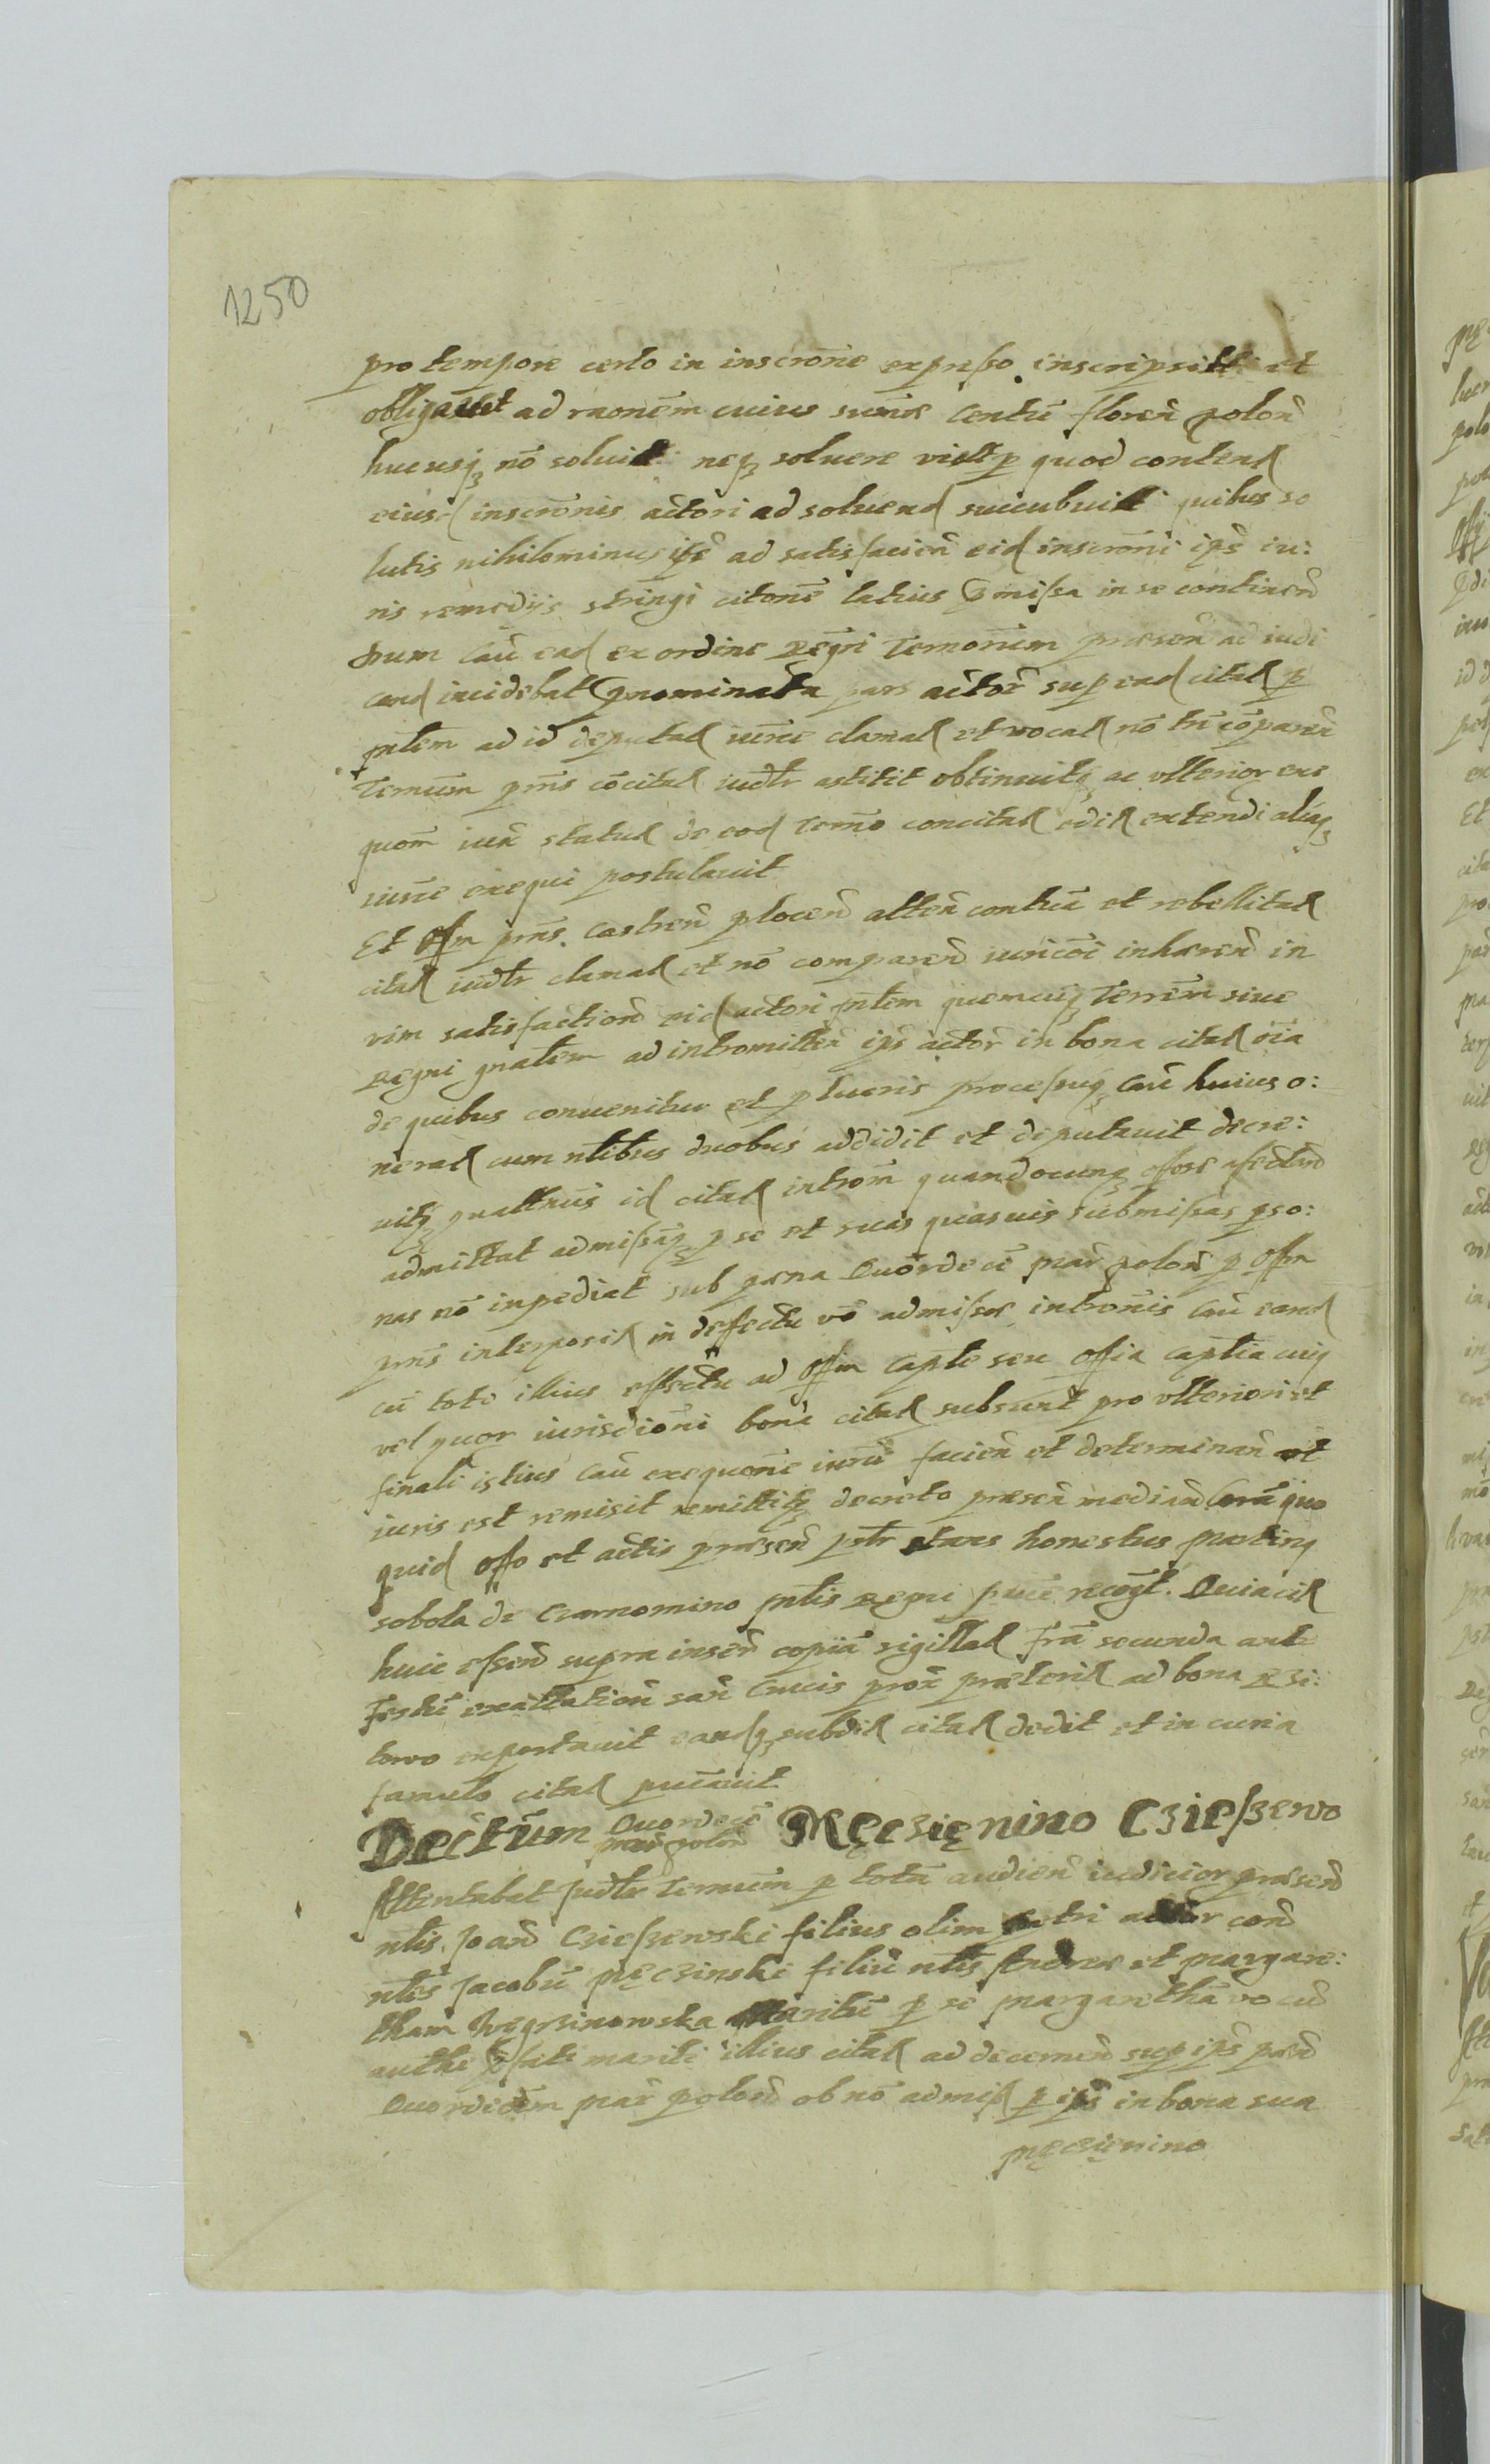 1250
pro tempore certo in inscrone expresso inscripsit et
obligavit ad raonem cuius sumæ Centu floren polon
hucusq no soluit neq soluere vult p quod conten
eiusd inscronis actori ad soluend succubuit quibus so
lutis nihilominus ipse ad satisfacien eid inscroni ips iu:
ris remedijs stringi citone latius præmissa in se continen
Dum Cau ead ex ordine Regri Termorum præsen ad iudi
cand incidebat prnominata pars actor sup ead citat p
mlem ad id deputat iurne clamat et vocat no tn comparen
Termum prns cocitat iudtr astitit obtinuitq ac ulterior exe
quom iuri statut de eod Termo concitat edit extendi aliasq
iurne exequi postulavit
Et Offm prns Castren plocen atten contua et rebellitat
citat iudtr clamat et no comparen iuricoi inhæren in
vim satisfaction eid actori mlem quemcuq Terrem siue
Regni gnalem ad intromitten ips actor in bona citat oia
de quibus convenitur et p lucris processuq Cau huius o:
nerat cum nlibus duobus addidit et deputavit decre:
vitq quattnus id citat introm quandocunq offose afectand
admittat admissaq p se et suas quasvis submissas pso:
nas no inpediat sub pæna Quordece mar polon p Offm
prns interposit in defectu vo admissæ intromis Cau eand
cu toti illius effectu ad Offm Captle seu Offia captlia cuiq
vel quor iurisdioni bona citat subsunt pro ulteriori et
finali istius Cau exequone iuru facien et determinan ut
iuris est remisit remittitq decreto præsen median Cora quo
quid offo et actis præsen pstr stans honestus Martinq
sobola de Czarnomino mlis Regni puce recogt. Quia cit
huic essend supra inser copia sigillat Fria secunda ante
Festu exaltation san Crucis prox præterit ad bona Rsi:
towo exportavit eandq subdit citat dedit et in curia
famulo citat puavit
Dectum Quordece mar polon Męczięnino Czieszewo
Attentabat Judtr Termum p tota audien iudicior præsen
nlis Joan Czieszewski filius olim Petri actor con
nles Jacobu Męczinski filiu nlis Andreæ et Margare:
tham Węgrzinowska Maritu p se Margaretha vo cu
authe præfati mariti illius citat ad decernen sup ips pæn
Quordecem mar polon ob no admis p ips in bona sua
Męczięnino